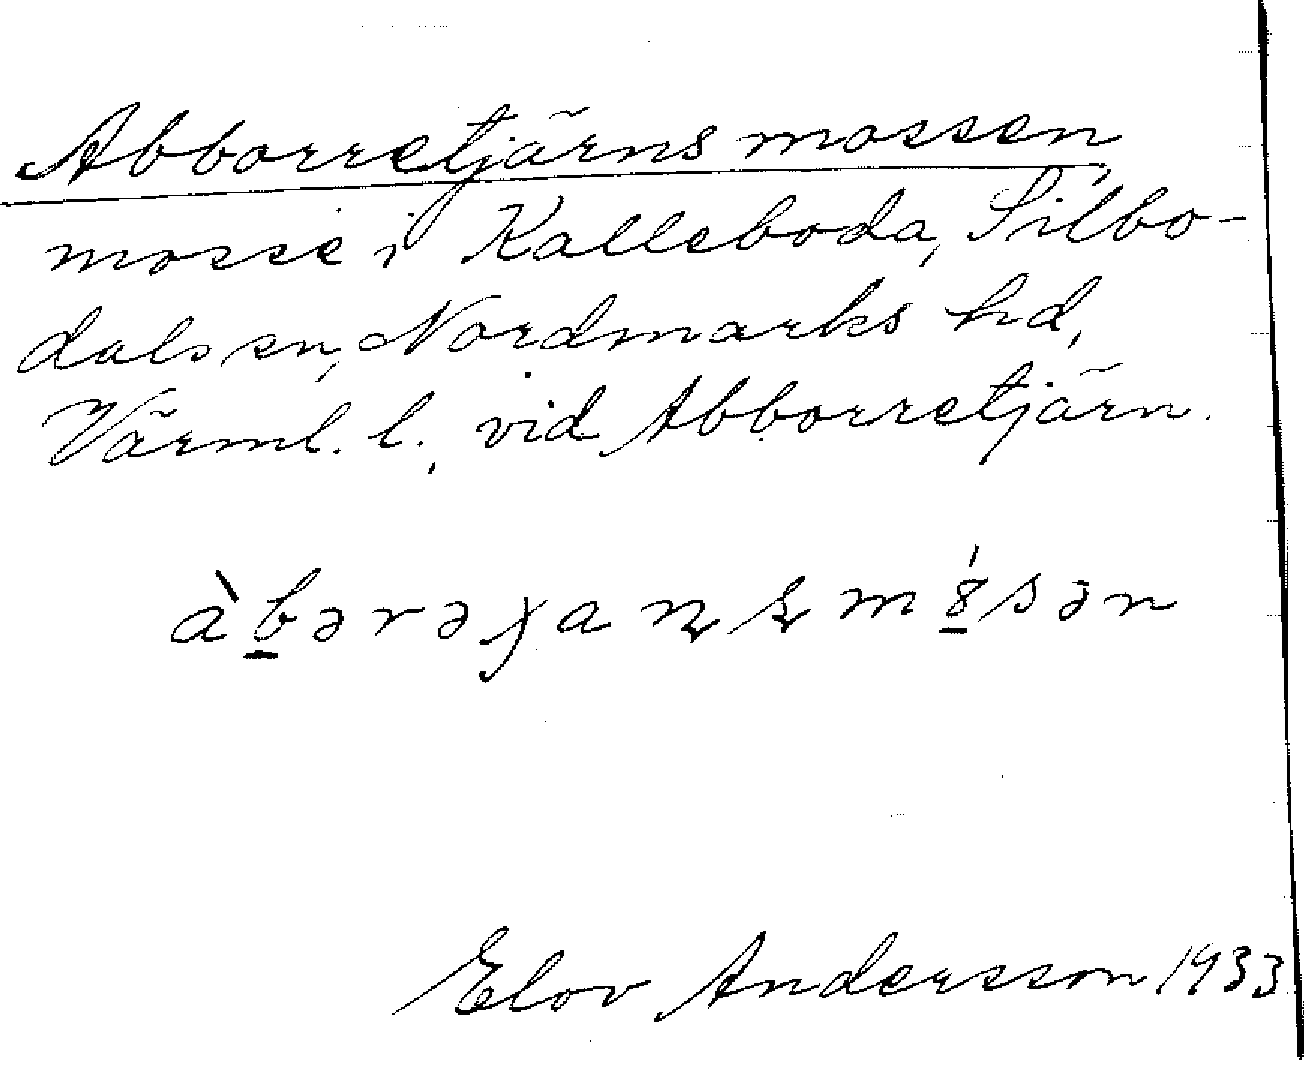 Abborretjärnsmossen
mosse i Kalleboda, Silbo-
dals sn, Nordmarks hd,
Värml. l., vid Abborretjärn.
Elov Andersson 1933